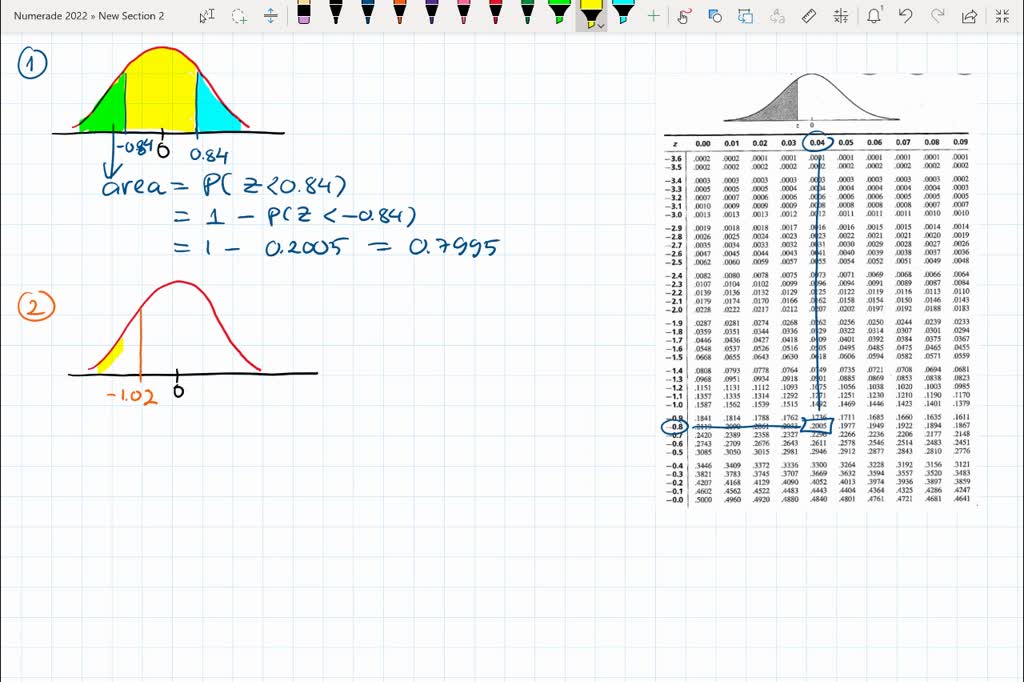 Numerade 2022 » New Section 2
①
-0.84 0 0.84
area = P( Z<0.84)
= 1 - P(Z <-0.84)
= 1 - 0.2005 = 0.7995
②
-1.02 0
z 0
z 0.00 0.01 0.02 0.03 0.04 0.05 0.06 0.07 0.08 0.09
-3.6 .0002 .0002 .0001 .0001 .0001 .0001 .0001 .0001 .0001 .0001
-3.5 .0002 .0002 .0002 .0002 .0002 .0002 .0002 .0002 .0002 .0002
-3.4 .0003 .0003 .0003 .0003 .0003 .0003 .0003 .0003 .0003 .0002
-3.3 .0005 .0005 .0005 .0004 .0004 .0004 .0004 .0004 .0004 .0003
-3.2 .0007 .0007 .0006 .0006 .0006 .0006 .0006 .0005 .0005 .0005
-3.1 .0010 .0009 .0009 .0009 .0008 .0008 .0008 .0008 .0007 .0007
-3.0 .0013 .0013 .0013 .0012 .0012 .0011 .0011 .0011 .0010 .0010
-2.9 .0019 .0018 .0018 .0017 .0016 .0016 .0015 .0015 .0014 .0014
-2.8 .0026 .0025 .0024 .0023 .0023 .0022 .0021 .0021 .0020 .0019
-2.7 .0035 .0034 .0033 .0032 .0031 .0030 .0029 .0028 .0027 .0026
-2.6 .0047 .0045 .0044 .0043 .0041 .0040 .0039 .0038 .0037 .0036
-2.5 .0062 .0060 .0059 .0057 .0055 .0054 .0052 .0051 .0049 .0048
-2.4 .0082 .0080 .0078 .0075 .0073 .0071 .0069 .0068 .0066 .0064
-2.3 .0107 .0104 .0102 .0099 .0096 .0094 .0091 .0089 .0087 .0084
-2.2 .0139 .0136 .0132 .0129 .0125 .0122 .0119 .0116 .0113 .0110
-2.1 .0179 .0174 .0170 .0166 .0162 .0158 .0154 .0150 .0146 .0143
-2.0 .0228 .0222 .0217 .0212 .0207 .0202 .0197 .0192 .0188 .0183
-1.9 .0287 .0281 .0274 .0268 .0262 .0256 .0250 .0244 .0239 .0233
-1.8 .0359 .0351 .0344 .0336 .0329 .0322 .0314 .0307 .0301 .0294
-1.7 .0446 .0436 .0427 .0418 .0409 .0401 .0392 .0384 .0375 .0367
-1.6 .0548 .0537 .0526 .0516 .0505 .0495 .0485 .0475 .0465 .0455
-1.5 .0668 .0655 .0643 .0630 .0618 .0606 .0594 .0582 .0571 .0559
-1.4 .0808 .0793 .0778 .0764 .0749 .0735 .0721 .0708 .0694 .0681
-1.3 .0968 .0951 .0934 .0918 .0901 .0885 .0869 .0853 .0838 .0823
-1.2 .1151 .1131 .1112 .1093 .1075 .1056 .1038 .1020 .1003 .0985
-1.1 .1357 .1335 .1314 .1292 .1271 .1251 .1230 .1210 .1190 .1170
-1.0 .1587 .1562 .1539 .1515 .1492 .1469 .1446 .1423 .1401 .1379
-0.9 .1841 .1814 .1788 .1762 .1736 .1711 .1685 .1660 .1635 .1611
-0.8 .2005 .1977 .1949 .1922 .1894 .1867
-0.7 .2420 .2389 .2358 .2327 .2296 .2266 .2236 .2206 .2177 .2148
-0.6 .2743 .2709 .2676 .2643 .2611 .2578 .2546 .2514 .2483 .2451
-0.5 .3085 .3050 .3015 .2981 .2946 .2912 .2877 .2843 .2810 .2776
-0.4 .3446 .3409 .3372 .3336 .3300 .3264 .3228 .3192 .3156 .3121
-0.3 .3821 .3783 .3745 .3707 .3669 .3632 .3594 .3557 .3520 .3483
-0.2 .4207 .4168 .4129 .4090 .4052 .4013 .3974 .3936 .3897 .3859
-0.1 .4602 .4562 .4522 .4483 .4443 .4404 .4364 .4325 .4286 .4247
-0.0 .5000 .4960 .4920 .4880 .4840 .4801 .4761 .4721 .4681 .4641